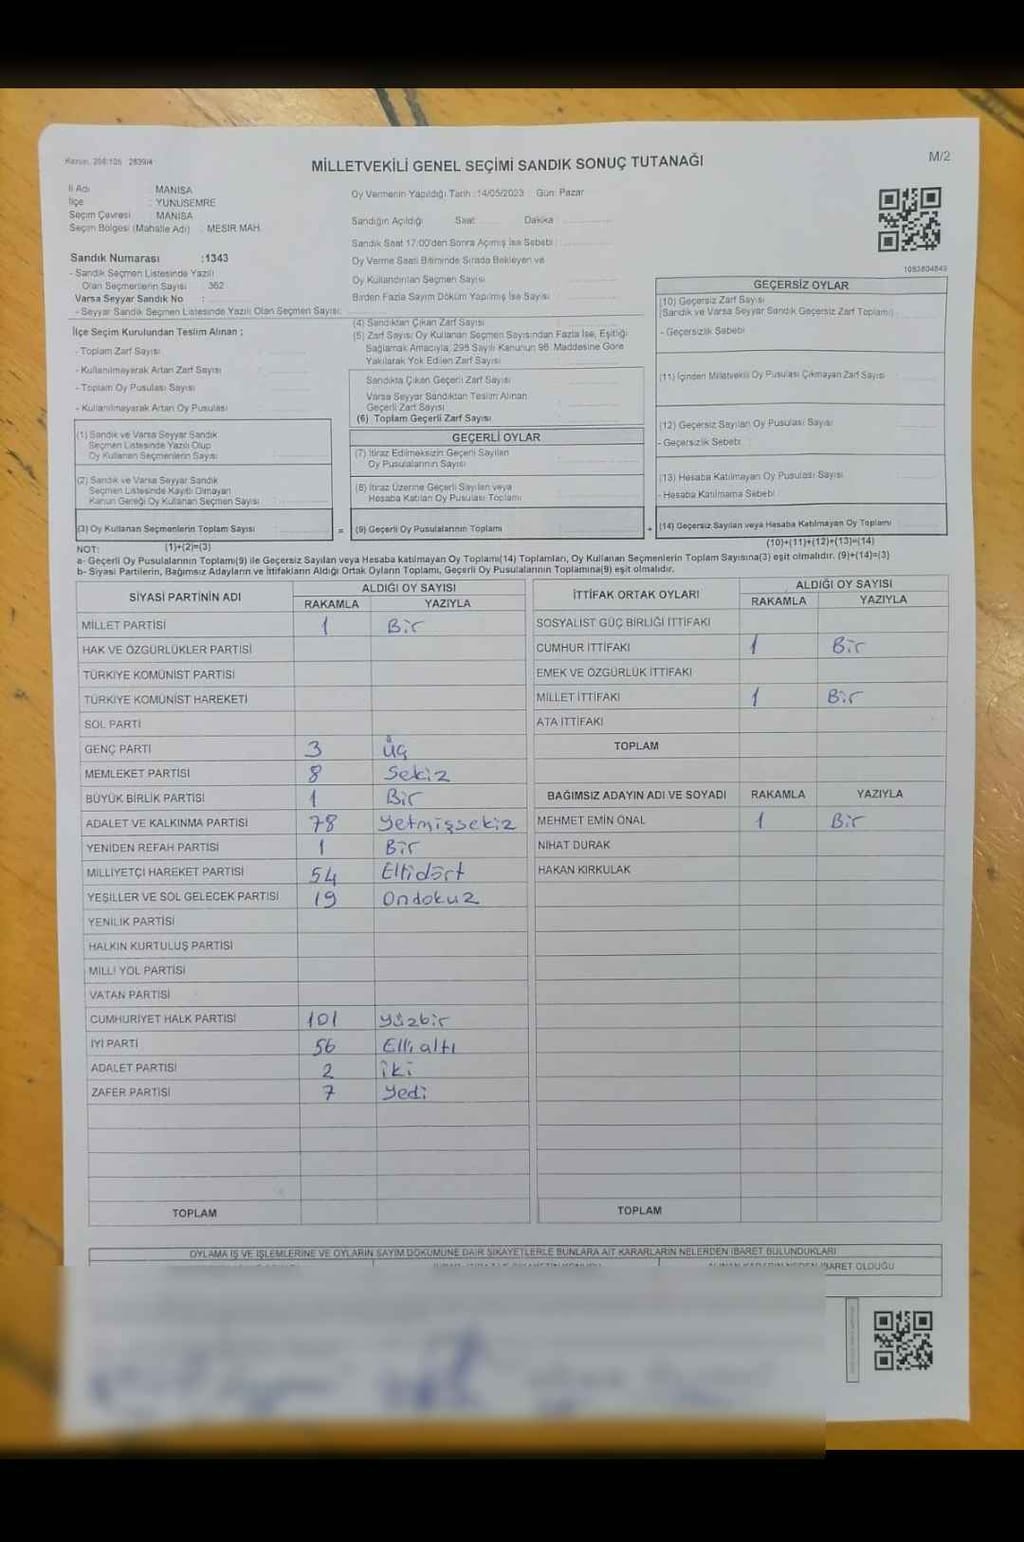 MİLLETVEKİLİ GENEL SEÇİMİ SANDIK SONUÇ TUTANAĞI
M/2
İl Adı : MANİSA
İlçe : YUNUSEMRE
Seçim Çevresi : MANİSA
Seçim Bölgesi (Mahalle Adı) : MESİR MAH.
Sandık Numarası :1343
- Sandık Seçmen Listesinde Yazılı
Olan Seçmenlerin Sayısı : 362
Varsa Seyyar Sandık No :
- Seyyar Sandık Seçmen Listesinde Yazılı Olan Seçmen Sayısı:
Oy Vermenin Yapıldığı Tarih :14/05/2023 Gün: Pazar
Sandığın Açıldığı Saat Dakika
Sandık Saat 17:00'den Sonra Açılmış İse Sebebi
Oy Verme Saati Bitiminde Sırada Bekleyen ve
Oy Kullandırılan Seçmen Sayısı
Birden Fazla Sayım Döküm Yapılmış İse Sayısı
1083804849
İlçe Seçim Kurulundan Teslim Alınan ;
- Toplam Zarf Sayısı
- Kullanılmayarak Artan Zarf Sayısı
- Toplam Oy Pusulası Sayısı
- Kullanılmayarak Artan Oy Pusulası
(1) Sandık ve Varsa Seyyar Sandık
Seçmen Listesinde Yazılı Olup
Oy Kullanan Seçmenlerin Sayısı
(2) Sandık ve Varsa Seyyar Sandık
Seçmen Listesinde Kayıtlı Olmayan
Kanun Gereği Oy Kullanan Seçmen Sayısı
(3) Oy Kullanan Seçmenlerin Toplam Sayısı
(1)+(2)=(3)
(4) Sandıktan Çıkan Zarf Sayısı
(5) Zarf Sayısı Oy Kullanan Seçmen Sayısından Fazla İse, Eşitliği
Sağlamak Amacıyla, 298 Sayılı Kanunun 98. Maddesine Göre
Yakılarak Yok Edilen Zarf Sayısı
Sandıkta Çıkan Geçerli Zarf Sayısı
Varsa Seyyar Sandıktan Teslim Alınan
Geçerli Zarf Sayısı
(6) Toplam Geçerli Zarf Sayısı
GEÇERLİ OYLAR
(7) İtiraz Edilmeksizin Geçerli Sayılan
Oy Pusulalarının Sayısı
(8) İtiraz Üzerine Geçerli Sayılan veya
Hesaba Katılan Oy Pusulası Toplamı
= (9) Geçerli Oy Pusulalarının Toplamı
GEÇERSİZ OYLAR
(10) Geçersiz Zarf Sayısı
(Sandık ve Varsa Seyyar Sandık Geçersiz Zarf Toplamı)
- Geçersizlik Sebebi
(11) İçinden Milletvekili Oy Pusulası Çıkmayan Zarf Sayısı
(12) Geçersiz Sayılan Oy Pusulası Sayısı
- Geçersizlik Sebebi
(13) Hesaba Katılmayan Oy Pusulası Sayısı
- Hesaba Katılmama Sebebi
+ (14) Geçersiz Sayılan veya Hesaba Katılmayan Oy Toplamı
(10)+(11)+(12)+(13)=(14)
NOT:
a- Geçerli Oy Pusulalarının Toplamı(9) ile Geçersiz Sayılan veya Hesaba katılmayan Oy Toplamı(14) Toplamları, Oy Kullanan Seçmenlerin Toplam Sayısına(3) eşit olmalıdır. (9)+(14)=(3)
b- Siyasi Partilerin, Bağımsız Adayların ve İttifakların Aldığı Ortak Oyların Toplamı, Geçerli Oy Pusulalarının Toplamına(9) eşit olmalıdır.
SİYASİ PARTİNİN ADI ALDIĞI OY SAYISI
RAKAMLA YAZIYLA
MİLLET PARTİSİ 1 Bir
HAK VE ÖZGÜRLÜKLER PARTİSİ
TÜRKİYE KOMÜNİST PARTİSİ
TÜRKİYE KOMÜNİST HAREKETİ
SOL PARTİ
GENÇ PARTİ 3 üç
MEMLEKET PARTİSİ 8 Sekiz
BÜYÜK BİRLİK PARTİSİ 1 Bir
ADALET VE KALKINMA PARTİSİ 78 Yetmişsekiz
YENİDEN REFAH PARTİSİ 1 Bir
MİLLİYETÇİ HAREKET PARTİSİ 54 Ellidört
YEŞİLLER VE SOL GELECEK PARTİSİ 19 Ondokuz
YENİLİK PARTİSİ
HALKIN KURTULUŞ PARTİSİ
MİLLİ YOL PARTİSİ
VATAN PARTİSİ
CUMHURİYET HALK PARTİSİ 101 Yüzbir
İYİ PARTİ 56 Elli altı
ADALET PARTİSİ 2 iki
ZAFER PARTİSİ 7 Yedi
TOPLAM
İTTİFAK ORTAK OYLARI ALDIĞI OY SAYISI
RAKAMLA YAZIYLA
SOSYALİST GÜÇ BİRLİĞİ İTTİFAKI
CUMHUR İTTİFAKI 1 Bir
EMEK VE ÖZGÜRLÜK İTTİFAKI
MİLLET İTTİFAKI 1 Bir
ATA İTTİFAKI
TOPLAM
BAĞIMSIZ ADAYIN ADI VE SOYADI RAKAMLA YAZIYLA
MEHMET EMİN ÖNAL 1 Bir
NİHAT DURAK
HAKAN KIRKULAK
TOPLAM
OYLAMA İŞ VE İŞLEMLERİNE VE OYLARIN SAYIM DÖKÜMÜNE DAİR ŞİKAYETLERLE BUNLARA AİT KARARLARIN NELERDEN İBARET BULUNDUKLARI
İBARET OLDUĞU